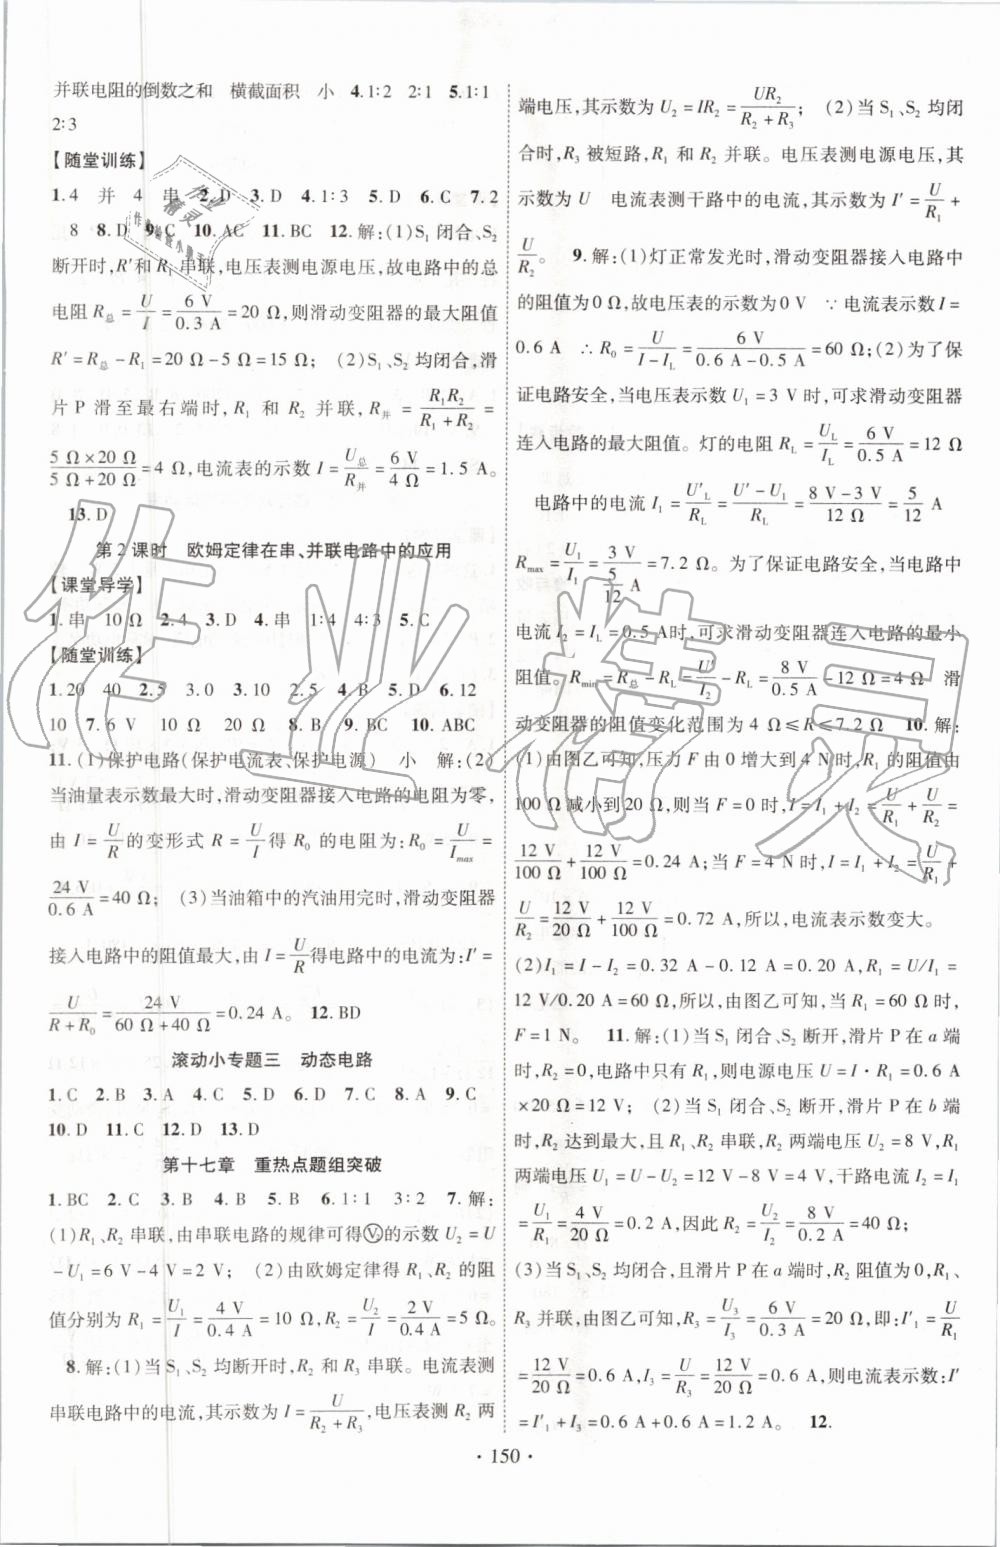 并联电阻的倒数之和　横截面积　小　4.1∶2　2∶1　5.1∶1
2∶3
【随堂训练】
1.4　并　4　串　2.D　3.D　4.1∶3　5.D　6.C　7.2
8　8.D　9.C　10.AC　11.BC　12.解:(1)S₁闭合、S₂
断开时,R′和R₁串联,电压表测电源电压,故电路中的总
电阻R总=U/I=6 V/0.3 A=20 Ω,则滑动变阻器的最大阻值
R′=R总-R₁=20 Ω-5 Ω=15 Ω;　(2)S₁、S₂均闭合,滑
片P滑至最右端时,R₁和R₂并联,R并=R₁R₂/(R₁+R₂)=
(5 Ω×20 Ω)/(5 Ω+20 Ω)=4 Ω,电流表的示数I=U总/R并=6 V/4 Ω=1.5 A。
13.D
第2课时　欧姆定律在串、并联电路中的应用
【课堂导学】
1.串　10 Ω　2.4　3.D　4.串　1∶4　4∶3　5.C
【随堂训练】
1.20　40　2.5　3.0　10　2.5　4.B　5.D　6.12
10　7.6 V　10 Ω　20 Ω　8.B　9.BC　10.ABC
11.(1)保护电路(保护电流表、保护电源)　小　解:(2)
当油量表示数最大时,滑动变阻器接入电路的电阻为零,
由I=U/R的变形式R=U/I得R₀的电阻为:R₀=U/Imax=
24 V/0.6 A=40 Ω;　(3)当油箱中的汽油用完时,滑动变阻器
接入电路中的阻值最大,由I=U/R得电路中的电流为:I′=
U/(R+R₀)=24 V/(60 Ω+40 Ω)=0.24 A。　12.BD
滚动小专题三　动态电路
1.C　2.B　3.A　4.C　5.D　6.D　7.C　8.A　9.C
10.D　11.C　12.D　13.D
第十七章　重热点题组突破
1.BC　2.C　3.B　4.B　5.B　6.1∶1　3∶2　7.解:
(1)R₁、R₂串联,由串联电路的规律可得Ⓥ的示数U₂=U
-U₁=6 V-4 V=2 V;　(2)由欧姆定律得R₁、R₂的阻
值分别为R₁=U₁/I=4 V/0.4 A=10 Ω,R₂=U₂/I=2 V/0.4 A=5 Ω。
8.解:(1)当S₁、S₂均断开时,R₂和R₃串联。电流表测
串联电路中的电流,其示数为I=U/(R₂+R₃),电压表测R₂两
端电压,其示数为U₂=IR₂=UR₂/(R₂+R₃);　(2)当S₁、S₂均闭
合时,R₃被短路,R₁和R₂并联。电压表测电源电压,其
示数为U　电流表测干路中的电流,其示数为I′=U/R₁+
U/R₂。　9.解:(1)灯正常发光时,滑动变阻器接入电路中
的阻值为0 Ω,故电压表的示数为0 V　∵电流表示数I=
0.6 A　∴R₀=U/(I-IL)=6 V/(0.6 A-0.5 A)=60 Ω;(2)为了保
证电路安全,当电压表示数U₁=3 V时,可求滑动变阻器
连入电路的最大阻值。灯的电阻RL=UL/IL=6 V/0.5 A=12 Ω
电路中的电流I₁=U′L/RL=(U′-U₁)/RL=(8 V-3 V)/12 Ω=5/12 A
Rmax=U₁/I₁=3 V/(5/12 A)=7.2 Ω。为了保证电路安全,当电路中
电流I₂=IL=0.5 A时,可求滑动变阻器连入电路的最小
阻值。Rmin=R总-RL=U/I₂-RL=8 V/0.5 A-12 Ω=4 Ω　滑
动变阻器的阻值变化范围为4 Ω≤R≤7.2 Ω　10.解:
(1)由图乙可知,压力F由0增大到4 N时,R₁的阻值由
100 Ω减小到20 Ω,则当F=0时,I=I₁+I₂=U/R₁+U/R₂=
12 V/100 Ω+12 V/100 Ω=0.24 A;当F=4 N时,I=I₁+I₂=U/R₁+
U/R₂=12 V/20 Ω+12 V/100 Ω=0.72 A,所以,电流表示数变大。
(2)I₁=I-I₂=0.32 A-0.12 A=0.20 A,R₁=U/I₁=
12 V/0.20 A=60 Ω,所以,由图乙可知,当R₁=60 Ω时,
F=1 N。　11.解:(1)当S₁闭合、S₂断开,滑片P在a端
时,R₂=0,电路中只有R₁,则电源电压U=I·R₁=0.6 A
×20 Ω=12 V;　(2)当S₁闭合、S₂断开,滑片P在b端
时,R₂达到最大,且R₁、R₂串联,R₂两端电压U₂=8 V,R₁
两端电压U₁=U-U₂=12 V-8 V=4 V,干路电流I₂=I₁
=U₁/R₁=4 V/20 Ω=0.2 A,因此R₂=U₂/I₂=8 V/0.2 A=40 Ω;
(3)当S₁、S₂均闭合,且滑片P在a端时,R₂阻值为0,R₁、
R₃并联。由图乙可知,R₃=U₃/I₃=6 V/0.3 A=20 Ω,即:I′₁=U/R₁
=12 V/20 Ω=0.6 A,I₃=U/R₃=12 V/20 Ω=0.6 A,则电流表示数:I′
=I′₁+I₃=0.6 A+0.6 A=1.2 A。　12.
·150·
作业精灵